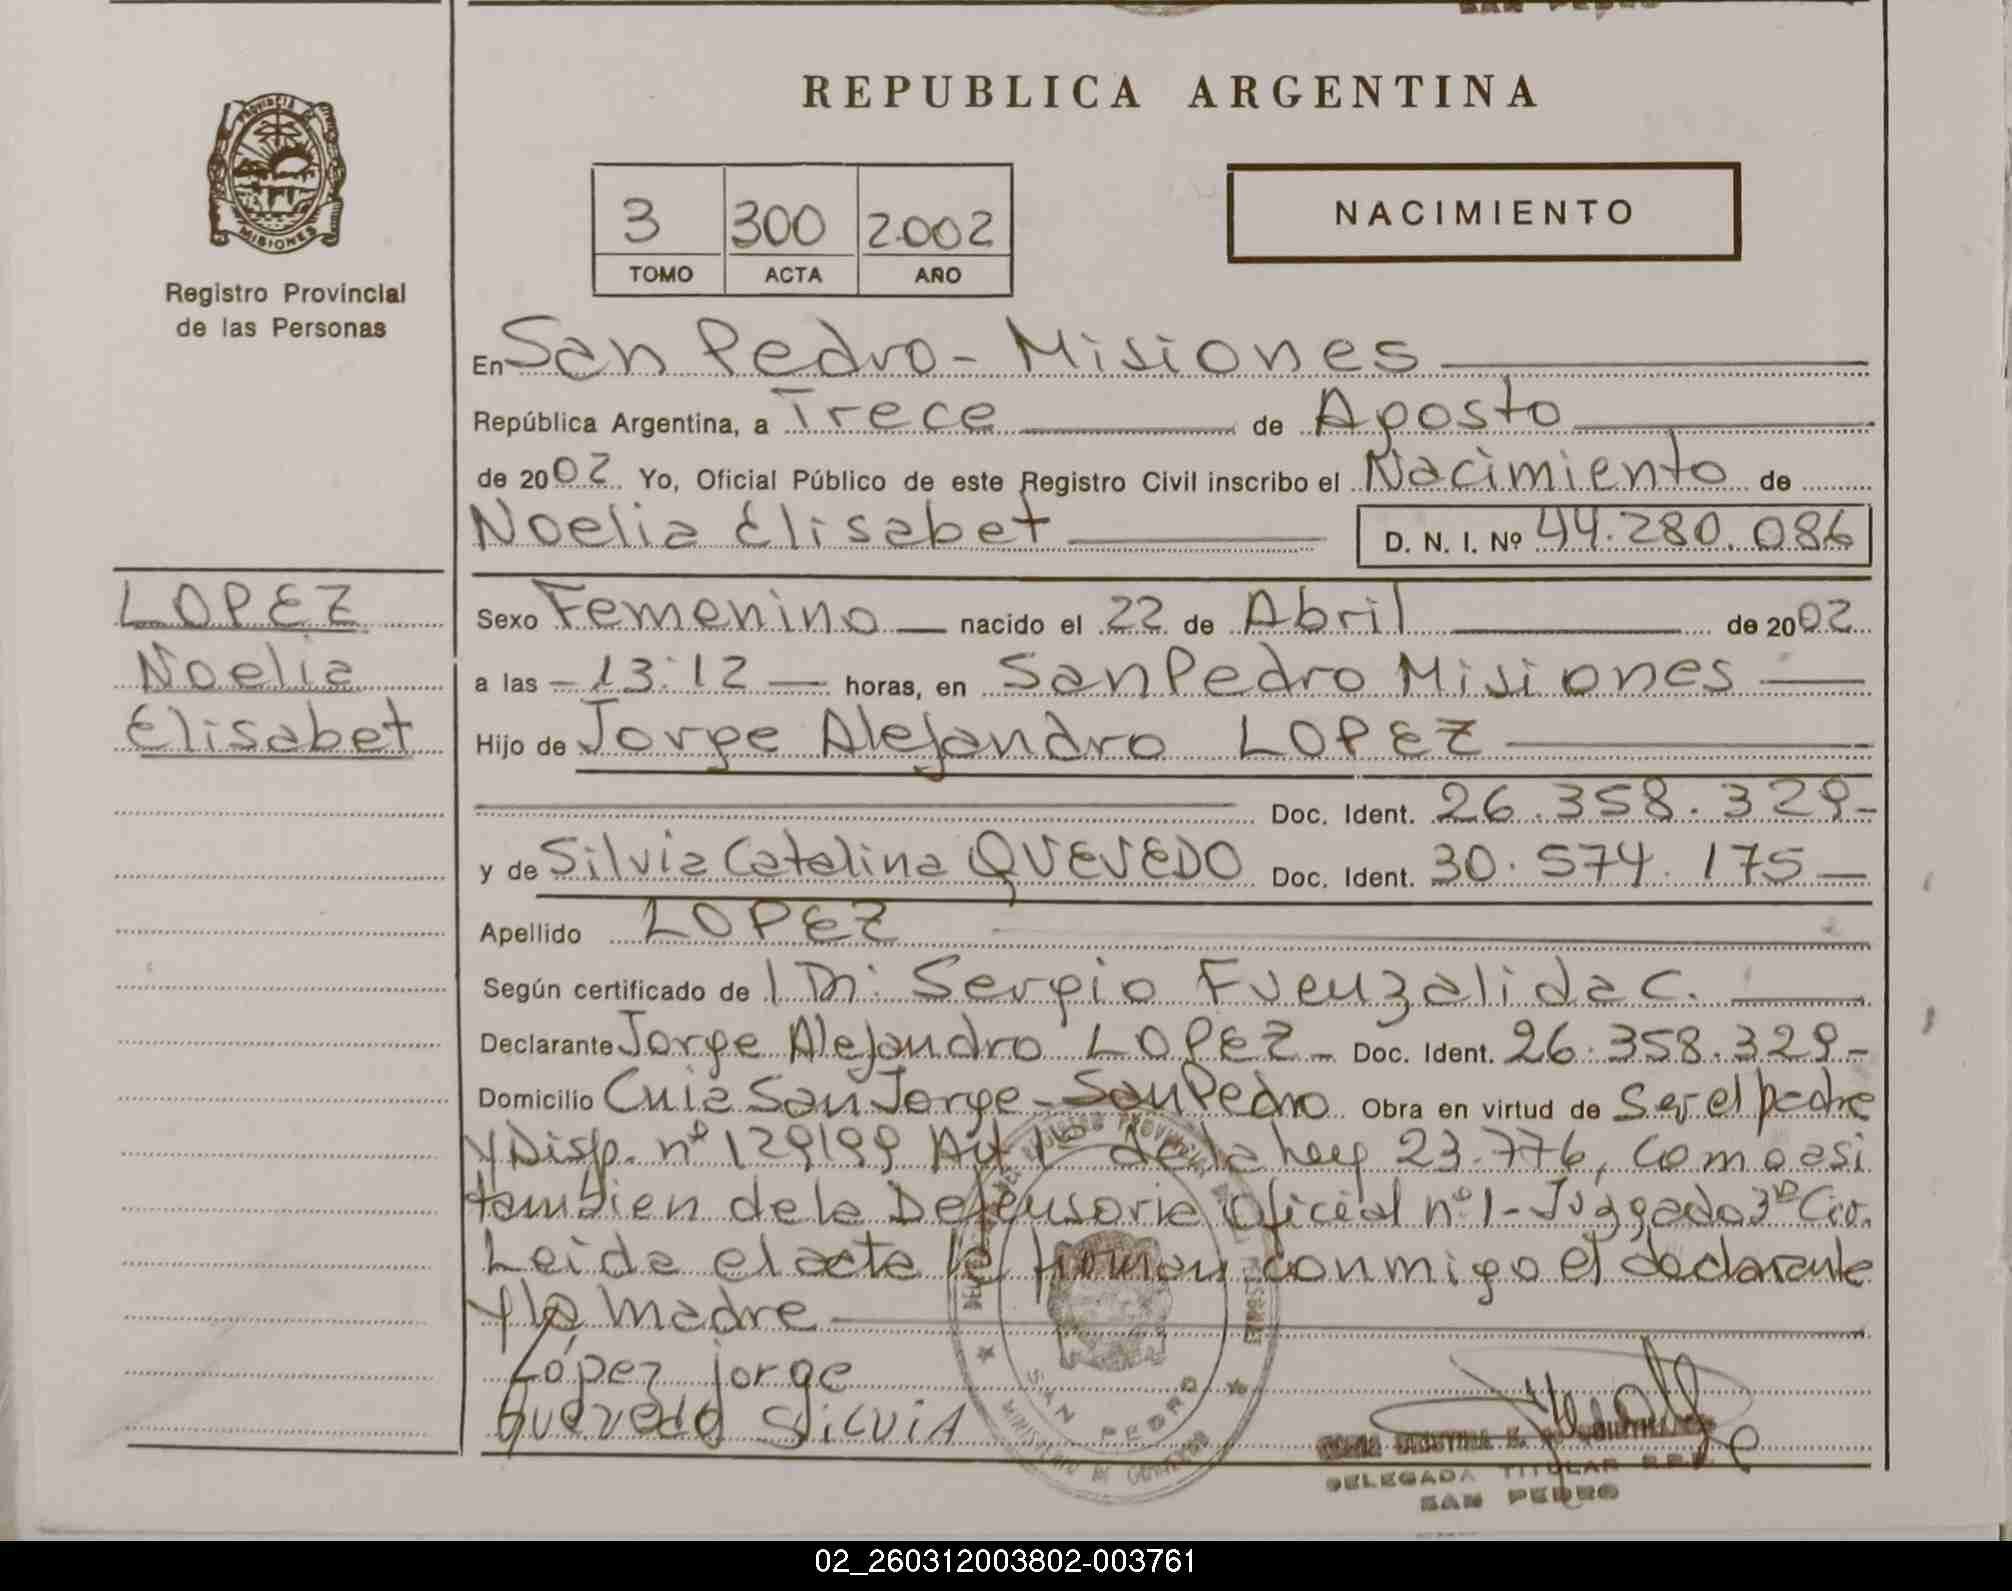 SAN PEDRO
REPUBLICA ARGENTINA
PROVINCIA DE
MISIONES
Registro Provincial
de las Personas
3 300 2002
TOMO ACTA AÑO
NACIMIENTO
En San Pedro - Misiones
República Argentina, a Trece de Agosto
de 2002 Yo, Oficial Público de este Registro Civil inscribo el Nacimiento de
Noelia Elisabet D. N. I. Nº 44.280.086
LOPEZ
Noelia
Elisabet
Sexo Femenino nacido el 22 de Abril de 2002
a las - 13:12 - horas, en San Pedro Misiones
Hijo de Jorge Alejandro LOPEZ
Doc. Ident. 26.358.329-
y de Silvia Catalina QUEVEDO Doc. Ident. 30.574.175-
Apellido LOPEZ
Según certificado de Dr: Sergio Fuenzalida C.
Declarante Jorge Alejandro LOPEZ - Doc. Ident. 26.358.329-
Domicilio Cnia San Jorge - San Pedro Obra en virtud de Ser el padre
y Disp. nº 129/99 Art 1º de la Ley 23.776, como asi
tambien de la Defensoria Oficial nº 1 - Juzgado 3º Civ.
Leida el acta la firman conmigo el declarante
y la madre
López jorge
Quevedo SiLVIA
SAN PEDRO
MINISTERIO DE GOBIERNO
DELEGADA TITULAR R.P.P.
SAN PEDRO
02_260312003802-003761